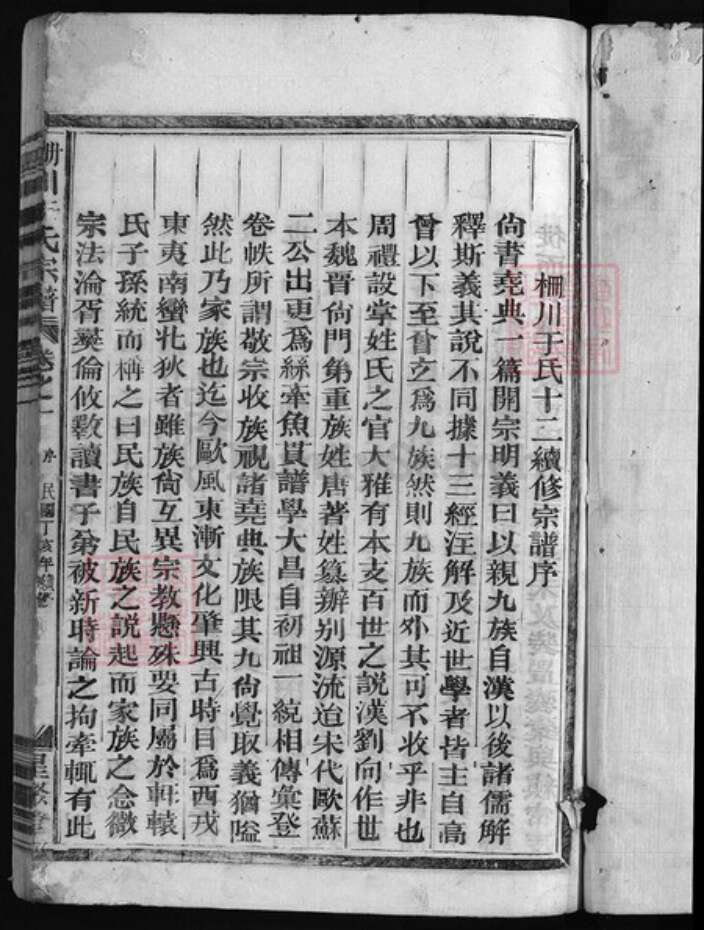 柵川于氏十二續修宗譜序
尙書堯典一篇開宗明義曰以親九族自漢以後諸儒解
釋斯義其說不同據十三經注解及近世學者皆主自高
曾以下至曾玄爲九族然則九族而外其可不收乎非也
周禮設掌姓氏之官大雅有本支百世之說漢劉向作世
本魏晋尙門第重族姓唐著姓纂辦别源流迨宋代歐蘇
二公出更爲絲牽魚貫譜學大昌自初祖一統相傳彙登
卷帙所謂敬宗收族視諸堯典族限其九尙覺取義猶隘
然此乃家族也迄今歐風東漸文化肇興古時目爲西戎
東夷南蠻北狄者雖族尙互異宗教懸殊要同屬於軒轅
氏子孫統而稱之曰民族自民族之說起而家族之念微
宗法淪胥彝倫攸斁讀書子弟被新時論之拘牽輒有此
川于氏宗譜 卷之一 序 民國丁亥年續修